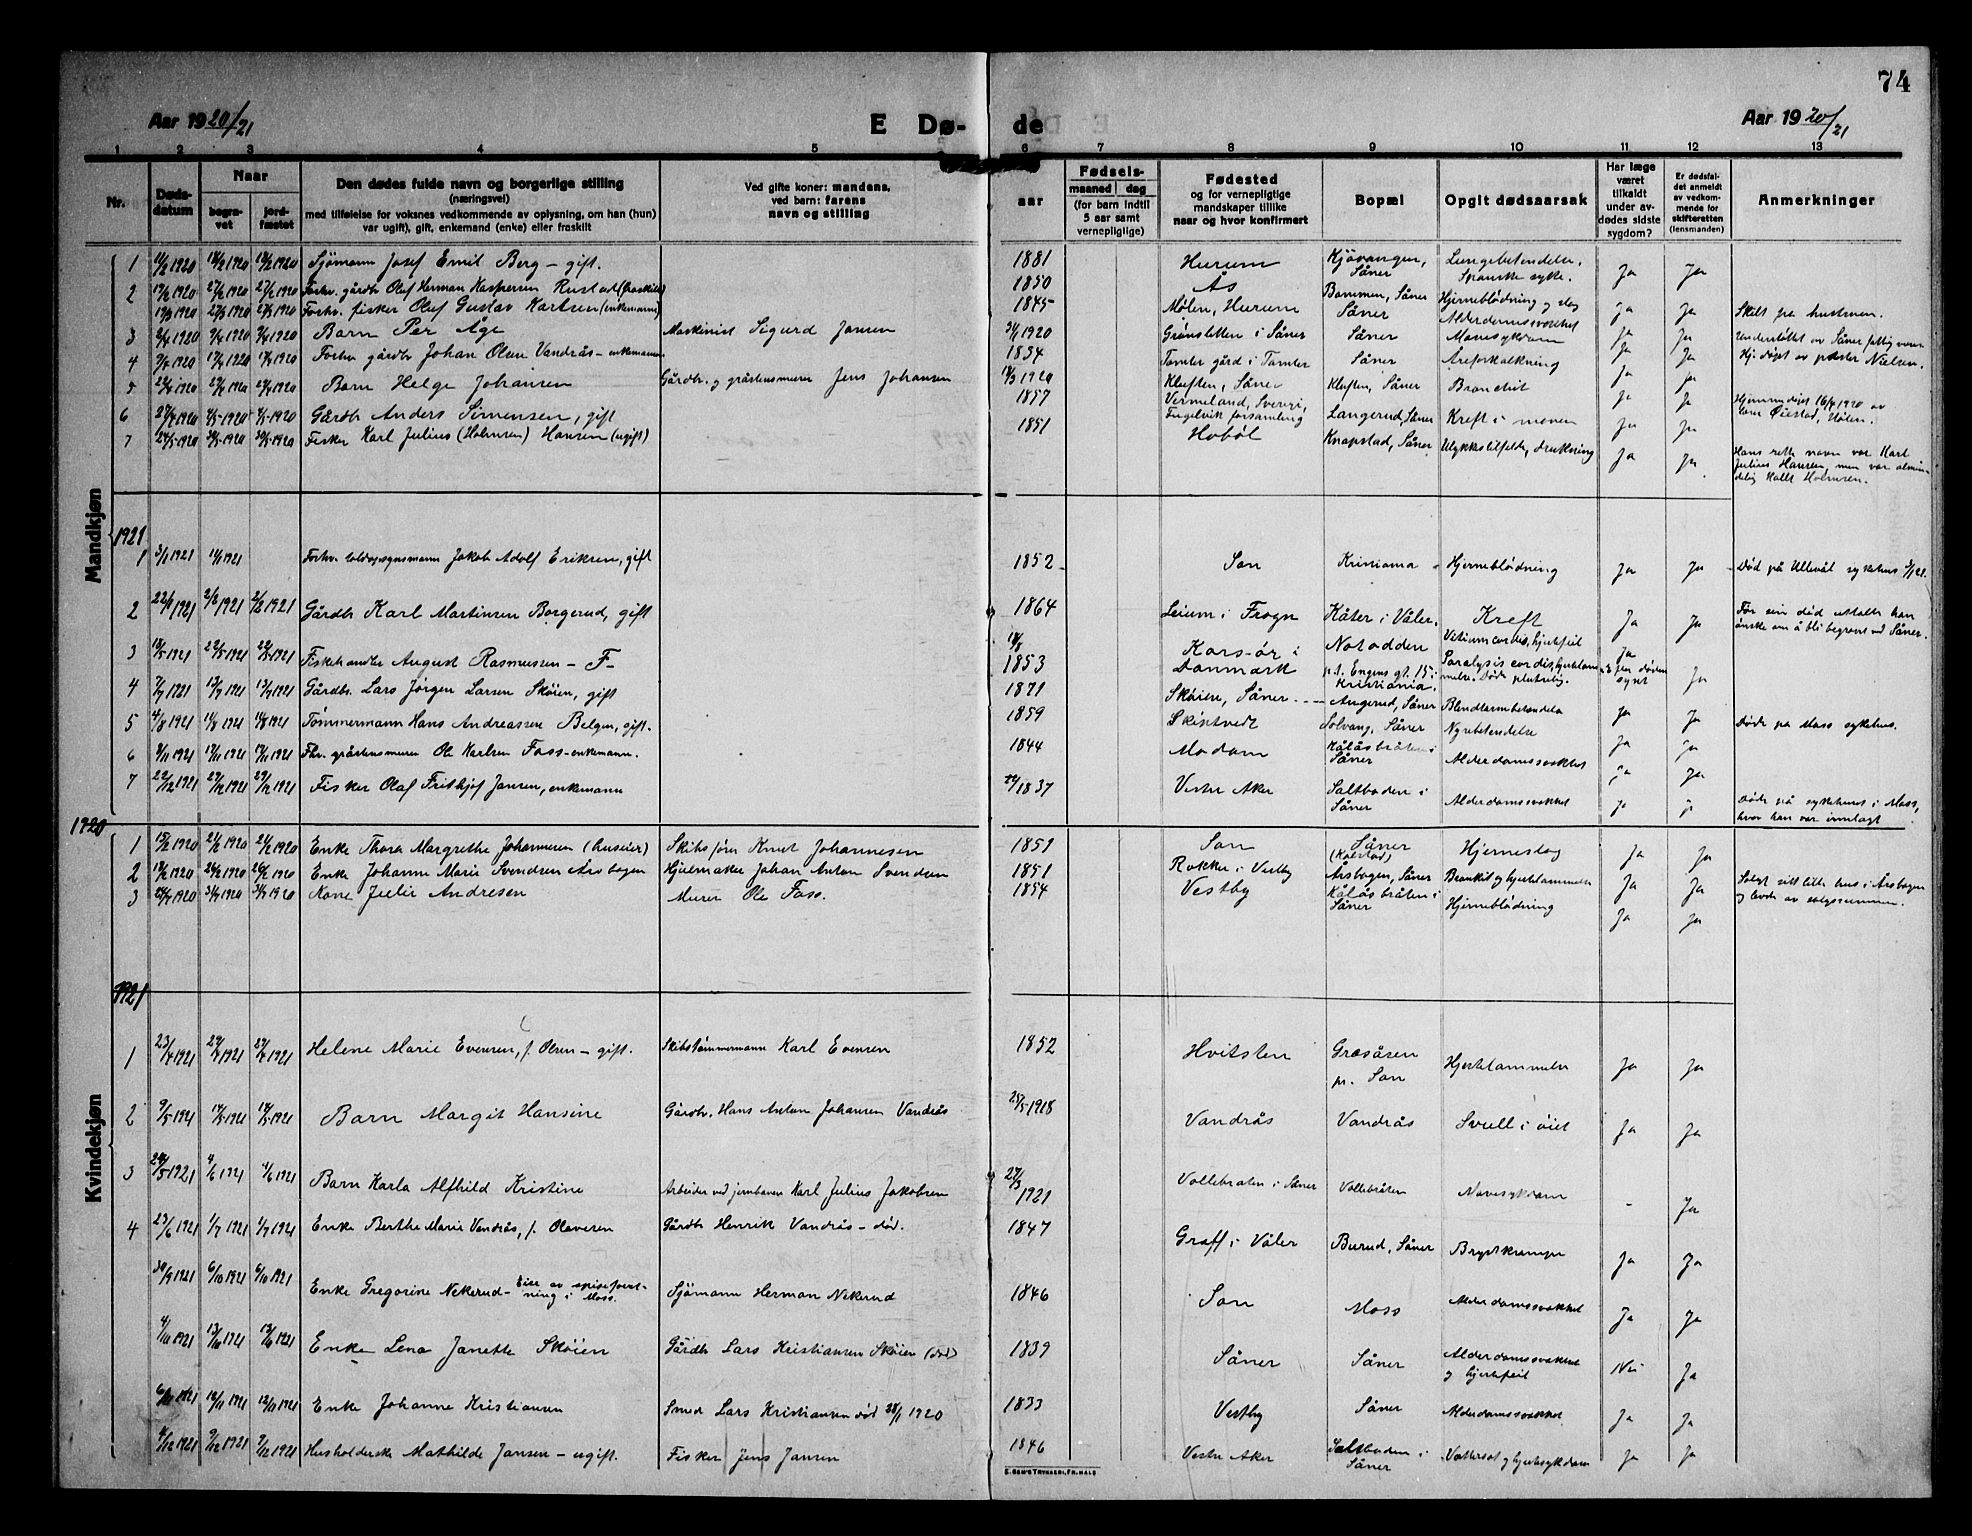 74
Aar 1920/21
E Dø- de
Aar 1920/21
1 2 3 4 5 6 7 8 9 10 11 12 13
Nr.
Døds-datum
Naar
begra-vet
jord-fæstet
Den dødes fulde navn og borgerlige stilling
(næringsvei)
med tilføielse for voksnes vedkommende av oplysning, om han (hun)
var ugift), gift, enkemand (enke) eller fraskilt
Ved gifte koner: mandens,
ved barn: farens
navn og stilling
Fødsels-
aar
maaned dag
(for barn indtil
5 aar samt
vernepligtige)
Fødested
og for vernepligtige
mandskaper tillike
naar og hvor konfirmert
Bopæl
Opgit dødsaarsak
Har læge
været
tilkaldt
under av-
dødes sidste
sygdom?
Er dødsfal-
det anmeldt
av vedkom-
mende for
skifteretten
(lensmanden)
Anmerkninger
Mandkjøn
1 11/2 1920 18/2 1920 18/2 1920 Sjömann Josef Emil Berg - gift. 1881 Hurum Kjövangen, Såner Lungebetendelse, Spanske syke. Ja Ja
2 27/2 1920 27/2 1920 Forhv. gårdbr Olaf Herman Kaspersen Rustad (fraskilt) 1850 Ås Bommen, Såner Hjerneblödning og slag Ja Ja Skilt på hustruen.
Forhv. fisker Olaf Gustav Karlsen (enkemann) 1845 Mølen, Hurum Såner Alderdomssvakhet Ja Ja Understöttet av Såner fattigvesen
3 Barn Per Åge Maskinist Sigurd Jansen 1920 Grønsletten i Såner Såner Mavesykdom Ja Ja Hj. döpt av pastor Nielsen.
4 Forhv gårdbr Johan Olsen Vandrås - enkemann 1834 Tomter gård i Tomter Såner Åreforkalkning Ja Ja
5 Barn Helge Johansen Gårdbr. og gråstensmurer Jens Johansen 1920 Kloften, Såner Kloften, Såner Bronchit Ja Ja Hjemmedöpt 16/4 1920 av
6 Gårdb Anders Simensen, gift 1857 Vermeland, Sverige, Fugelvik forsamling Langerud, Såner Kreft i maven Ja Ja
7 Fisker Karl Julius (Holmsen) Hansen (ugift) 1851 Hobøl Knapstad, Såner Ulykkestilfelde, drukning Ja Ja Hans rette navn var Karl
Julius Hansen, men var almin-
delig kallt Holmsen.
1921
1 3/1 1921 11/1 1921 Forhv. toldopsynsmann Jakob Adolf Eriksen, gift 1852 Son Kristiania Hjerneblödning Ja Ja Död på Ullevål sykehus 3/1 21.
2 22/1 1921 2/2 1921 2/2 1921 Gårdb Karl Martinsen Borgerud, gift 1864 Leium i Frogn Kåter i Våler. Kreft Ja Ja För sin död uttalte han
ønske om å bli begravet ved Såner.
3 18/5 1921 22/5 1921 22/5 1921 Fiskehandler August Rasmussen - F- 18/8 1853 Korsör i Danmark Notodden p.t. Engens gt. 15 i Kristiania. Vitium cordis, hjertefeil Paralysis cordis, hjertelammelse. Døde plutselig. Ja Ja
4 7/7 1921 13/7 1921 13/7 1921 Gårdbr. Lars Jørgen Larsen Skøien, gift 1871 Skøien, Såner Augerud, Såner Blindtarmbetendelse Ja Ja
5 4/8 1921 11/8 1921 11/8 1921 Tømmermann Hans Andreassen Belgen, gift. 1859 Skiptvedt Solvang, Såner Nyrebetendelse Ja Ja Döde på Moss sykehus.
6 9/11 1921 17/11 1921 17/11 1921 Fhv. gråstensmurer Ole Karlsen Foss - enkemann. 1844 Modum Kålåsbråten i Såner Alderdomssvakhet Ja Ja
7 22/12 1921 29/12 1921 29/12 1921 Fisker Olaf Frithjof Jansen, enkemann 1837 Vestre Aker Saltboden i Såner Alderdomssvakhet Ja Ja Döde på sykehuset i Moss,
hvor han var innlagt
Kvindekjøn
1920
1 15/2 1920 24/2 1920 24/2 1920 Enke Thora Margrethe Johannesen (huseier) Skibsfører Knut Johannesen 1859 Son Såner (Kolstad) Hjerneslag Ja Ja
2 26/2 1920 26/2 1920 Enke Johanne Marie Svendsen Årsbogen Hjulmaker Johan Anton Svendsen 1851 Rokke i Vestby Årsbogen, Såner Bronkit og hjertelammelse Ja Ja Solgt sitt lille hus i Årsbogen
og levde av salgssummen.
3 Kone Julie Andresen Murer Ole Foss. 1854 Vestby Kålåsbråten i Såner Hjerneblödning Ja Ja
1921
1 23/4 1921 29/4 1921 29/4 1921 Helene Marie Evensen, f. Olsen - gift. Skibstömmermann Karl Evensen 1852 Hvitsten Gråsåsen pr. Son Hjertelammelse Ja Ja
2 9/5 1921 14/5 1921 14/5 1921 Barn Margit Hansine Gårdbr. Hans Anton Johansen Vandrås 1918 Vandrås Vandrås Svull i öiet Ja Ja
3 1921 4/6 1921 4/6 1921 Barn Karla Alfhild Kristine Arbeider ved jernbanen Karl Julius Jakobsen 27/3 1921 Vollebråten i Såner Vollebråten Mavesykdom - Ja
4 23/6 1921 1/7 1921 1/7 1921 Enke Berthe Marie Vandrås, f. Olavesen Gårdb Henrik Vandrås - död. 1847 Graff i Våler Burud, Såner Brystkrampe Ja Ja
30/9 1921 6/10 1921 6/10 1921 Enke Gregorine Nekerud - Eier av spiseforretning i Moss. Sjömann Herman Nekerud 1846 Son Moss Alderdomssvakhet Ja Ja
4/10 1921 13/10 1921 13/10 1921 Enke Lena Janette Skøien Gårdb Lars Kristiansen Skøien (död) 1839 Såner Såner Alderdomssvakhet og hjertefeil Nei Ja
6/11 1921 12/11 1921 12/11 1921 Enke Johanne Kristiansen Smed Lars Kristiansen död 28/1 1920 1833 Vestby Såner Alderdomssvakhet Ja Ja
4/12 1921 9/12 1921 9/12 1921 Husholderske Mathilde Jansen - ugift. Fisker Jens Jansen 1846 Vestre Aker Saltboden i Såner Vattersot og hjertesykdom Ja Ja
E. SEM'S TRYKKERI, FR.HALD